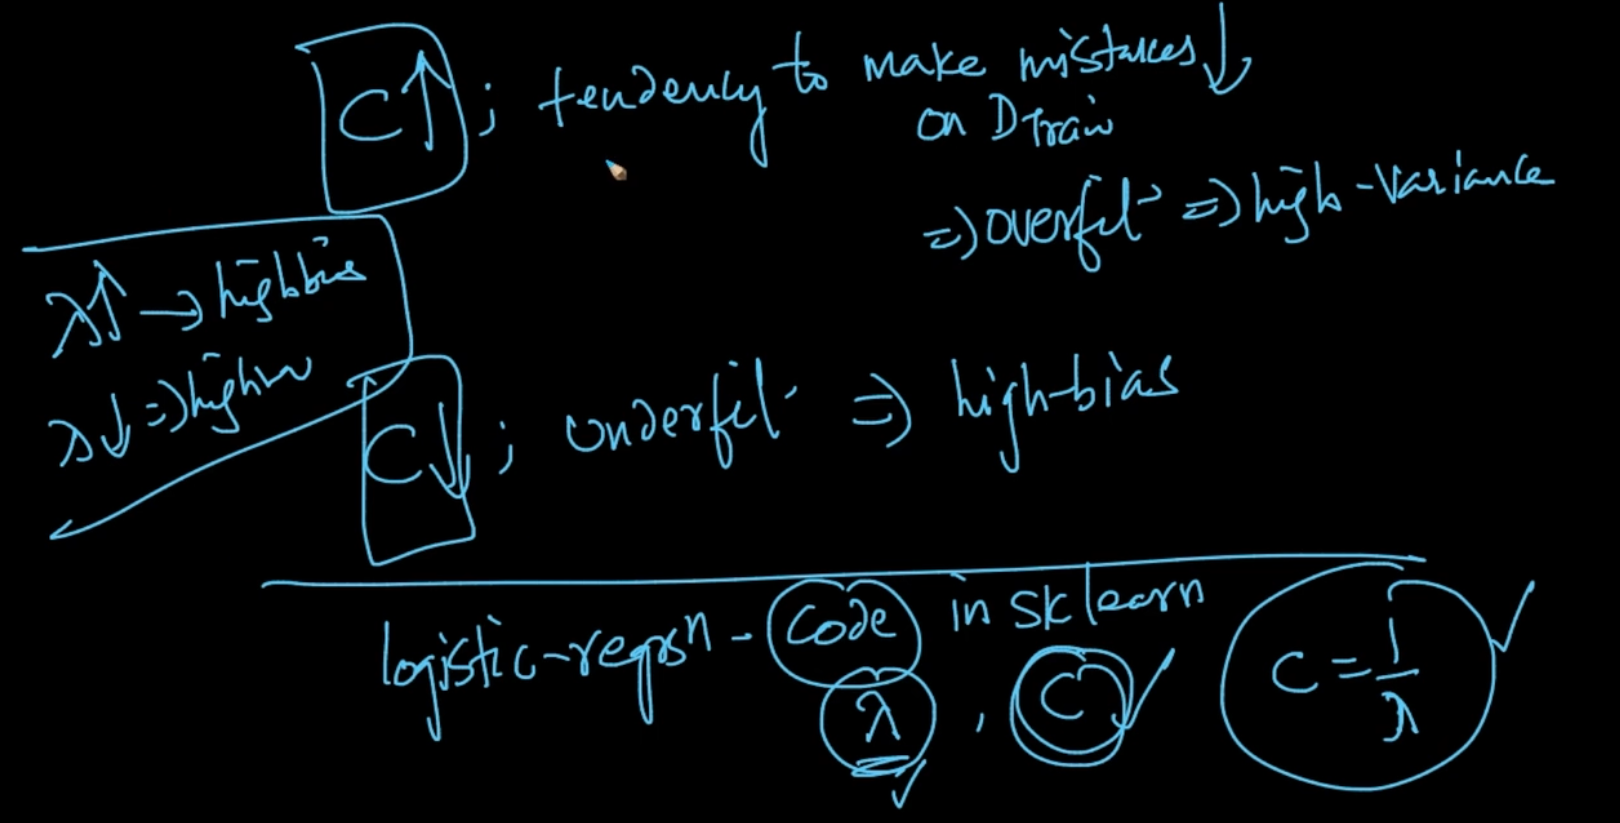 C↑ ; tendency to make mistakes ↓
on Dtrain
=> overfit => high-variance
λ↑ → high bias
λ↓ => high var
C↓ ; underfit => high-bias
logistic-regrsn - code in sklearn
λ , C ✓
✓
C = 1/λ ✓